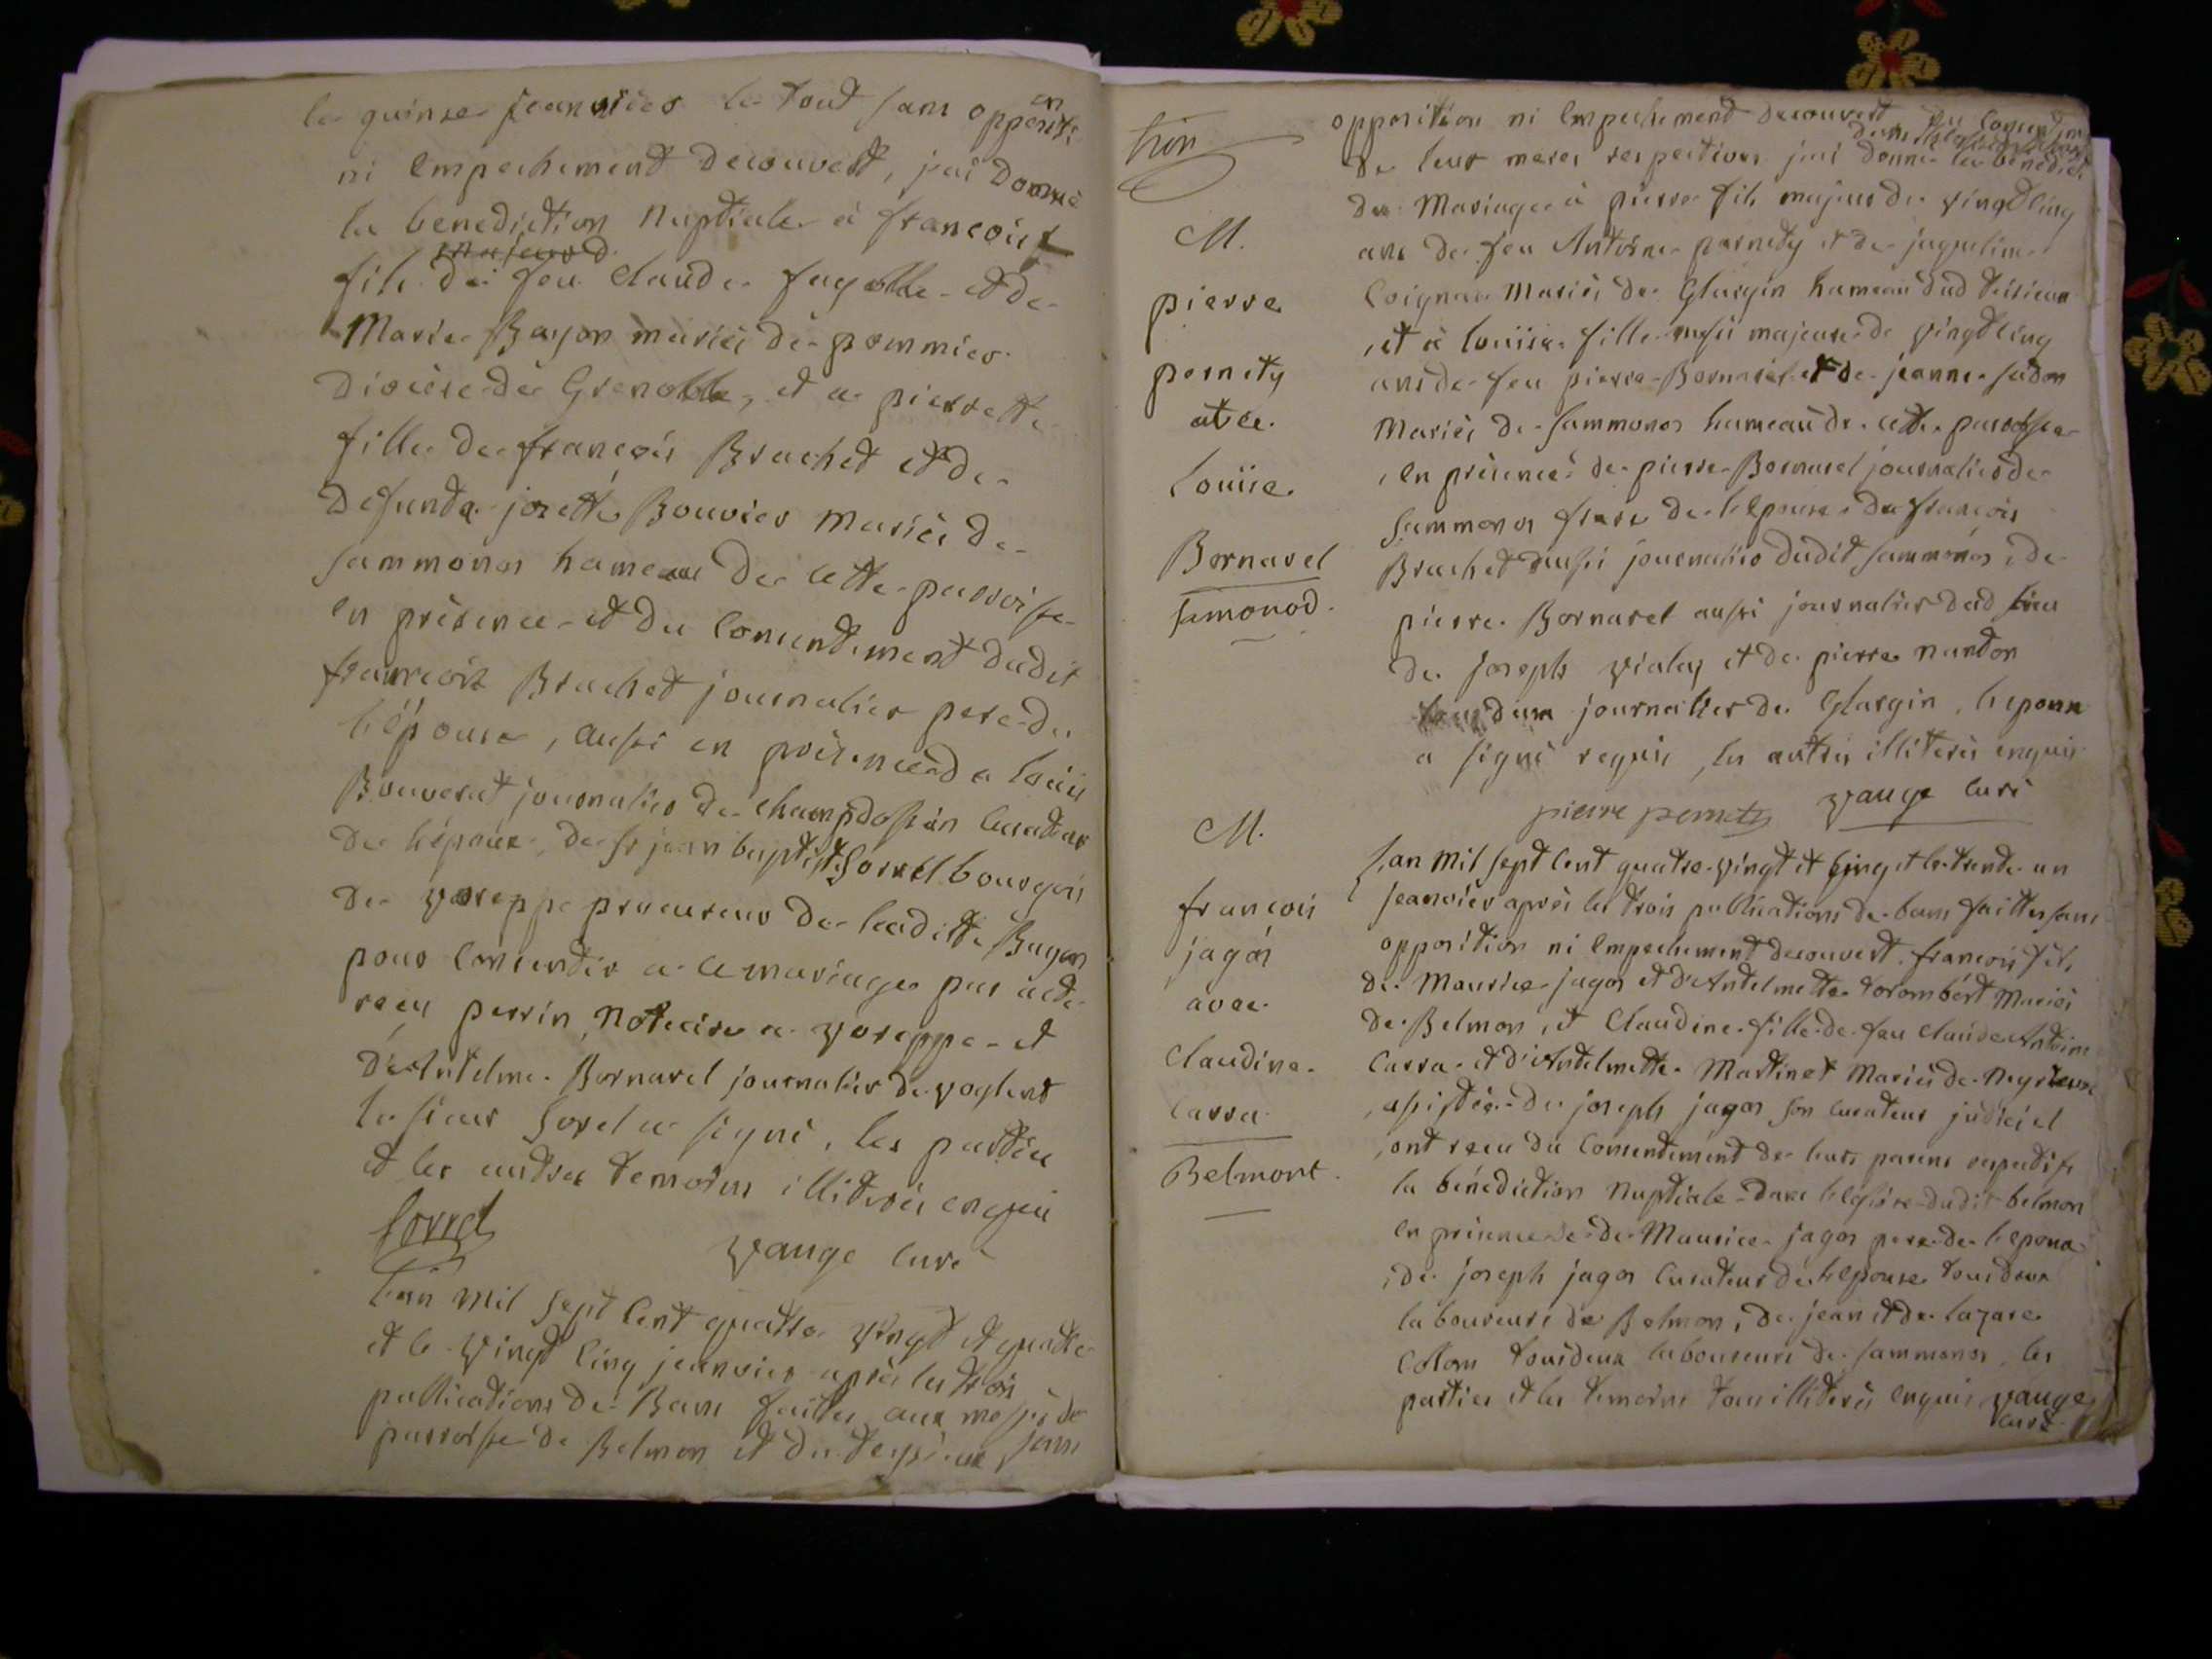 le quinze jeanvier le tout sans oppositi
on
ni Empechement decouvert, jai donné
la benediction Nuptiale a francois
fils de feu Claude fagolle et de
Marie Bayon mariés de pommier
diocèse de Grenoble, et a pierrette
fille de francois Brachet et de
defunte josette Bouvier mariés de
sammonor hameau de cette parroisse
en présence et du Consentement dudit
francois Brachet journalier pere de
l'épouse, aussi en présence de louis
Bouverat journalier de champdossin Curateur
de l'épouse, de sr jean baptiste Sorrel bourgeois
de voreppe procureur de laditte Bayon
pour Consentir a ce mariage par acte
reçu perrin Notaire a voreppe et
d'Antelme Bornarel journalier de
le sieur Sorel a signé, les parties
et les autres temoins illiterés enquis
Sorrel
vange Curé
L'an mil sept Cent quatre vingt et quatre
et le vingt Cinq jeanvier après les trois
publications de Bans faittes aux messes de
parroisse de Belmon et de teysieux sans
opposition ni Empechement decouvert du Consentem
de leur meres respectives jai donné la bénédicti
tion
du Mariage à pierre fils majeur de vingt Cinq
ans de feu Antoine pernety et de jaqueline
Coignar Mariés de Glargin hameau dud teisieux
, et à louise fille aussi majeure de vingt Cinq
ans de feu pierre Bornarel et de jeanne
Mariés de Sammonor hameau de cette parroisse
, en présence de pierre Bornarel journalier de
Sammonor frere de l'Epouse de francois
Brachet aussi journalier dudit Sammonor, de
pierre Bornarel aussi journalier dud lieu
de joseph vialey et de pierre nandon
journalier de Glargin, l'epoux
a signé requis, les autres illiterés enquis
pierre pernety vange Curé
M.
pierre
pernety
avec
louise
Bornarel
samonod.
L'an Mil sept Cent quatre-vingt et Cinq et le trente un
jeanvier après les trois publications de bans faittes sans
opposition ni Empechement decouvert. francois fils
de Maurice jagor et d'Antelmette torombert Mariés
de Belmon, et Claudine fille de feu Claude Antoine
Carra et d'Antelmette Martinet Mariés de
, assistée de joseph jagor son Curateur judiciel
, ont reçu du Consentement de leurs parens respectifs
la bénédiction Nuptiale dans l'Eglise dudit belmon
en présence de Maurice jagor pere de l'epoux
, de joseph jagor Curateur de l'Epouse tous deux
laboureurs de Belmon, de jean et de lazare
Colom tous deux laboureurs de Sammonor, les
parties et les temoins tous illiterés enquis vange
curé
M.
francois
jagor
avec
Claudine
Carra
Belmont.